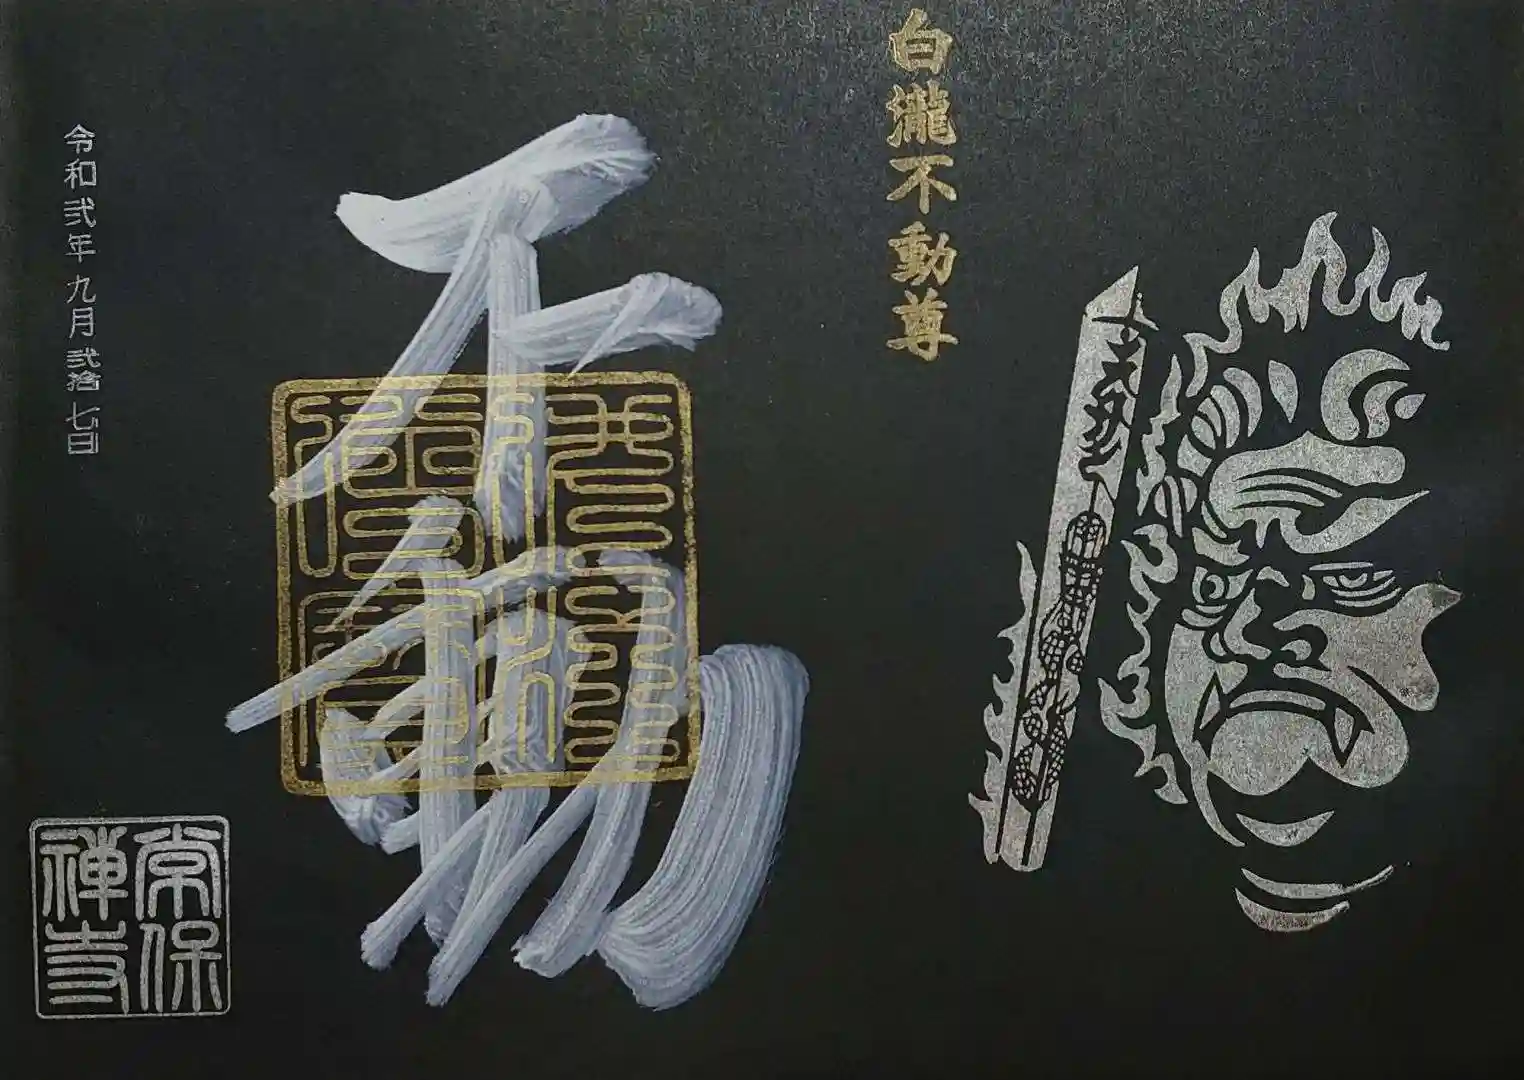 白瀧不動尊
不動
佛法僧寶
令和弐年九月弐拾七日
常保禅寺